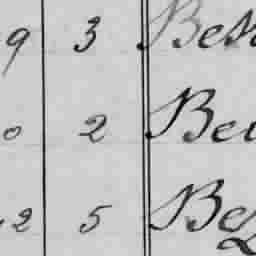 9 3 Bes
0 2 Be
2 5 Be